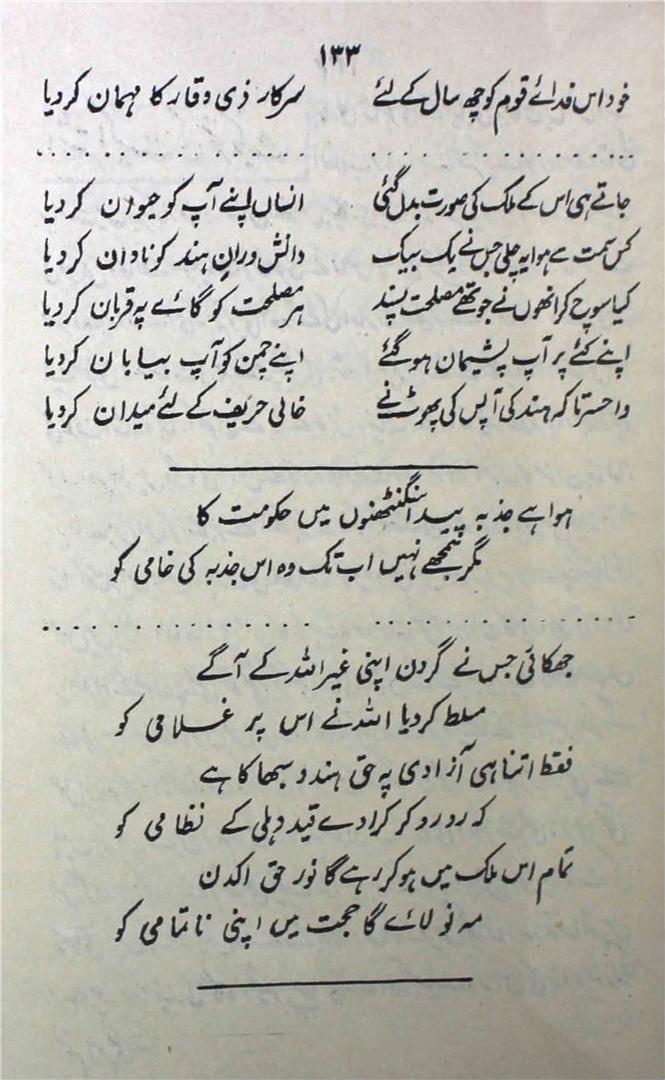 ۱۳۳
خود اس فدائے قوم کو چھ سال کے لئے سرکار ذی وقار کا مہمان کردیا
جاتے ہی اس کے ملک کی صورت بدل گئی انساں اپنے آپ کو حیوان کردیا
کس سمت سے ہوا یہ چلی جس نے یک بیک دانش وران ہند کو نادان کردیا
کیا سوچ کر انھوں نے جو تھے مصلحت پسند ہر مصلحت کو گائے پہ قربان کردیا
اپنے کئے پر آپ پشیمان ہوگئے اپنے چمن کو آپ بیابان کردیا
واحسرتا کہ ہند کی آپس کی پھوٹ نے خالی حریف کے لئے میدان کردیا
ہوا ہے جذبہ پیدا سنگٹھنوں میں حکومت کا
مگر سمجھے نہیں اب تک وہ اس جذبہ کی خامی کو
جھکائی جس نے گردن اپنی غیر اللہ کے آگے
مسلط کردیا اللہ نے اس پر غلامی کو
فقط اتنا ہی آزادی پہ حق ہندو سبھا کا ہے
کہ رو رو کر کرادے قید دہلی کے نظامی کو
تمام اس ملک میں ہوکر رہے گا نور حق اکدن
مہ نو لائے گا حجت میں اپنی ناتمامی کو